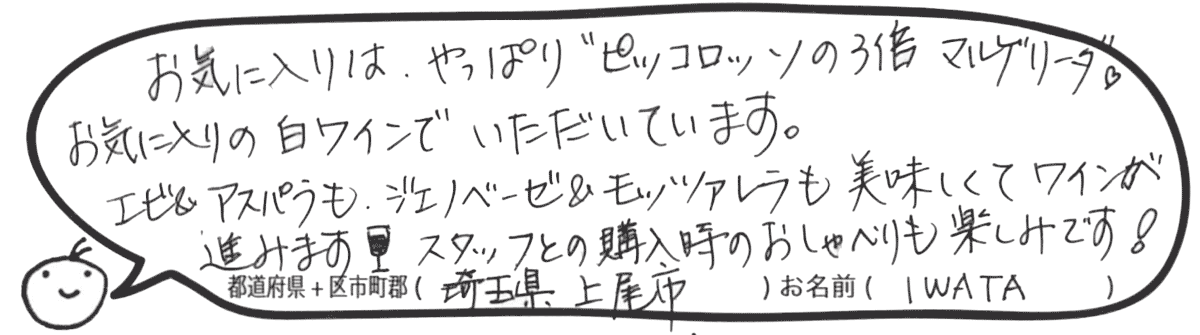 お気に入りは、やっぱり"ピッコロッソの3倍 マルゲリータ"♡
お気に入りの白ワインでいただいています。
エビ&アスパラも、ジェノベーゼ&モッツァレラも美味しくてワインが
進みます🍷スタッフとの購入時のおしゃべりも楽しみです!
都道府県+区市町郡( 埼玉県 上尾市 )お名前( IWATA )